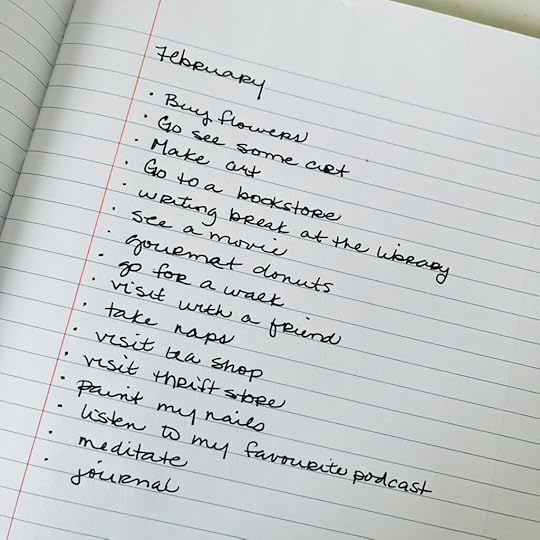 February
• Buy flowers
• Go see some art
• Make art
• Go to a bookstore
• writing break at the library
• see a movie
• gourmet donuts
• go for a walk
• visit with a friend
• take naps
• visit tea shop
• visit thrift store
• paint my nails
• listen to my favourite podcast
• meditate
• journal